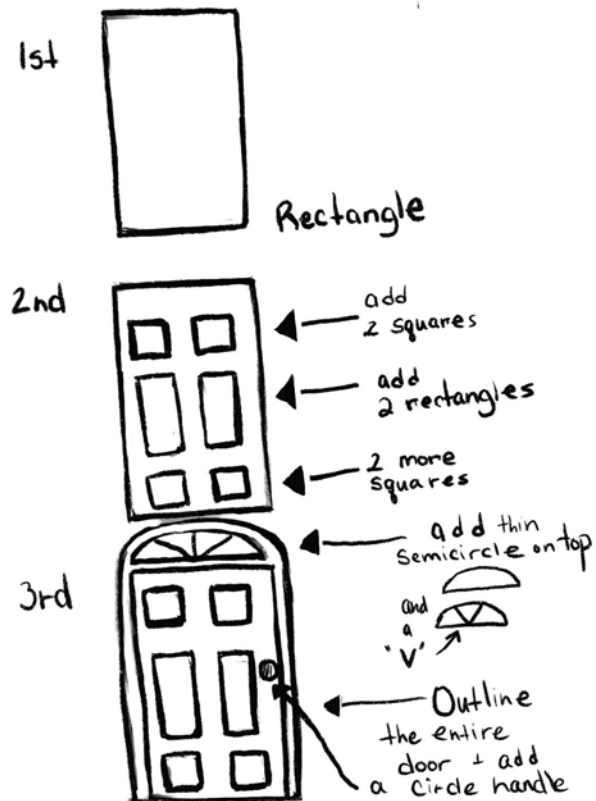 1st
Rectangle
2nd
add
2 squares
add
2 rectangles
2 more
squares
3rd
add thin
semicircle on top
and
a
"V"
Outline
the entire
door + add
a circle handle